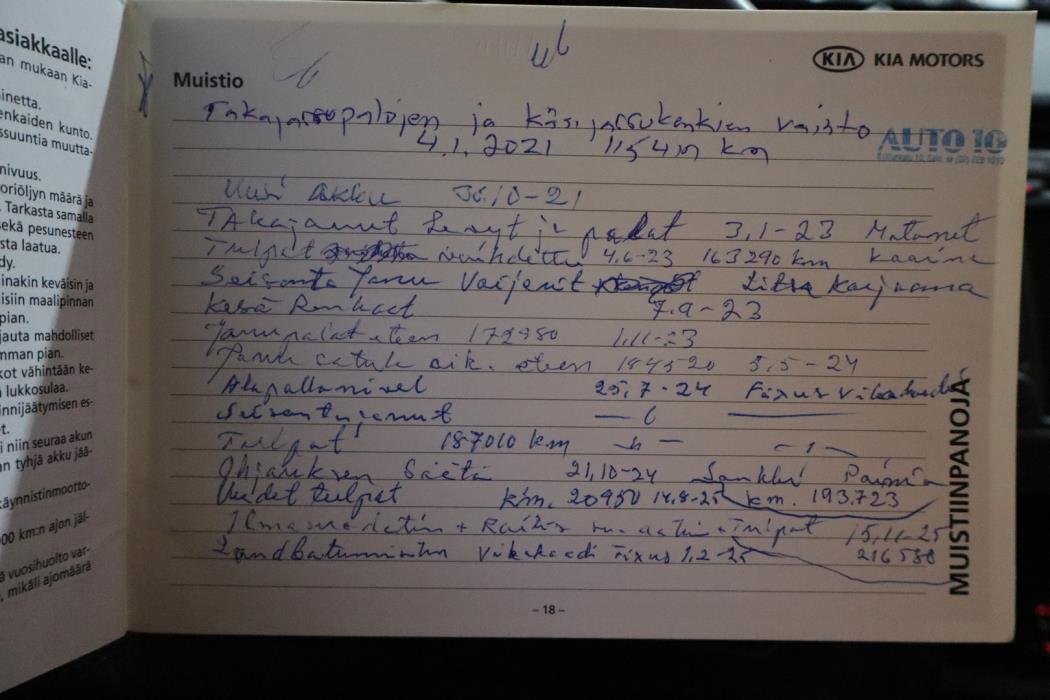 asiakkaalle:
an mukaan Kia-
inetta.
enkaiden kunto.
ssuuntia muutta-
nivuus.
oriöljyn määrä ja
. Tarkasta samalla
sekä pesunesteen
sta laatua.
dy.
inakin keväisin ja
isiin maalipinnan
pian.
jauta mahdolliset
mman pian.
kot vähintään ke-
lukkosulaa.
innijäätymisen es-
et.
i niin seuraa akun
an tyhjä akku jää-
käynnistinmootto-
00 km:n ajon jäl-
ä vuosihuolto var-
, mikäli ajomäärä
Muistio
KIA KIA MOTORS
Takajarrupalojen ja käsijarrukenkien vaihto
AUTO 10
4.1.2021 1154 km
Uusi akku 10-21
TAkajarrut Levyt ja palat 3,1-23
Tulpat vaihdettu 4.6-23 163290 km Kaarina
Seisonta Jarru Vaijerit
Kesä Renkaat 7.9-23
Jarrupalat eteen 172980 1.11-23
Jarru satula oik. eteen 184520 5,5-24
Alapallonivel 25,7-24 Fixus
Seisontajarrut
Tulpat 187010 km
Ohjauksen Säätö 21,10-24
Uudet tulpat km. 20950 14.8-25 km. 193.723
+ Tulpat 15,11-25
Vikakoodi Fixus 1,2-25 216580
- 18 -
MUISTIINPANOJA